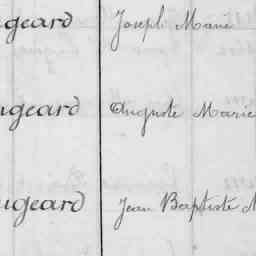 geard Joseph Marie
ugeard Auguste Marie
ugeard Jean Baptiste M